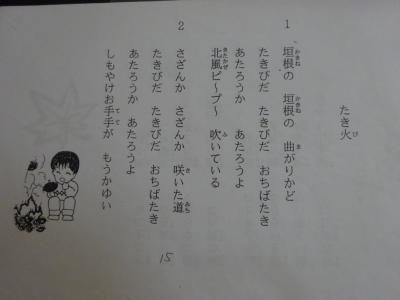 たき火
1
垣根の 垣根の 曲がりかど
たきびだ たきびだ おちばたき
あたろうか あたろうよ
北風ピ〜プ〜 吹いている
2
さざんか さざんか 咲いた道
たきびだ たきびだ おちばたき
あたろうか あたろうよ
しもやけお手手が もうかゆい
15